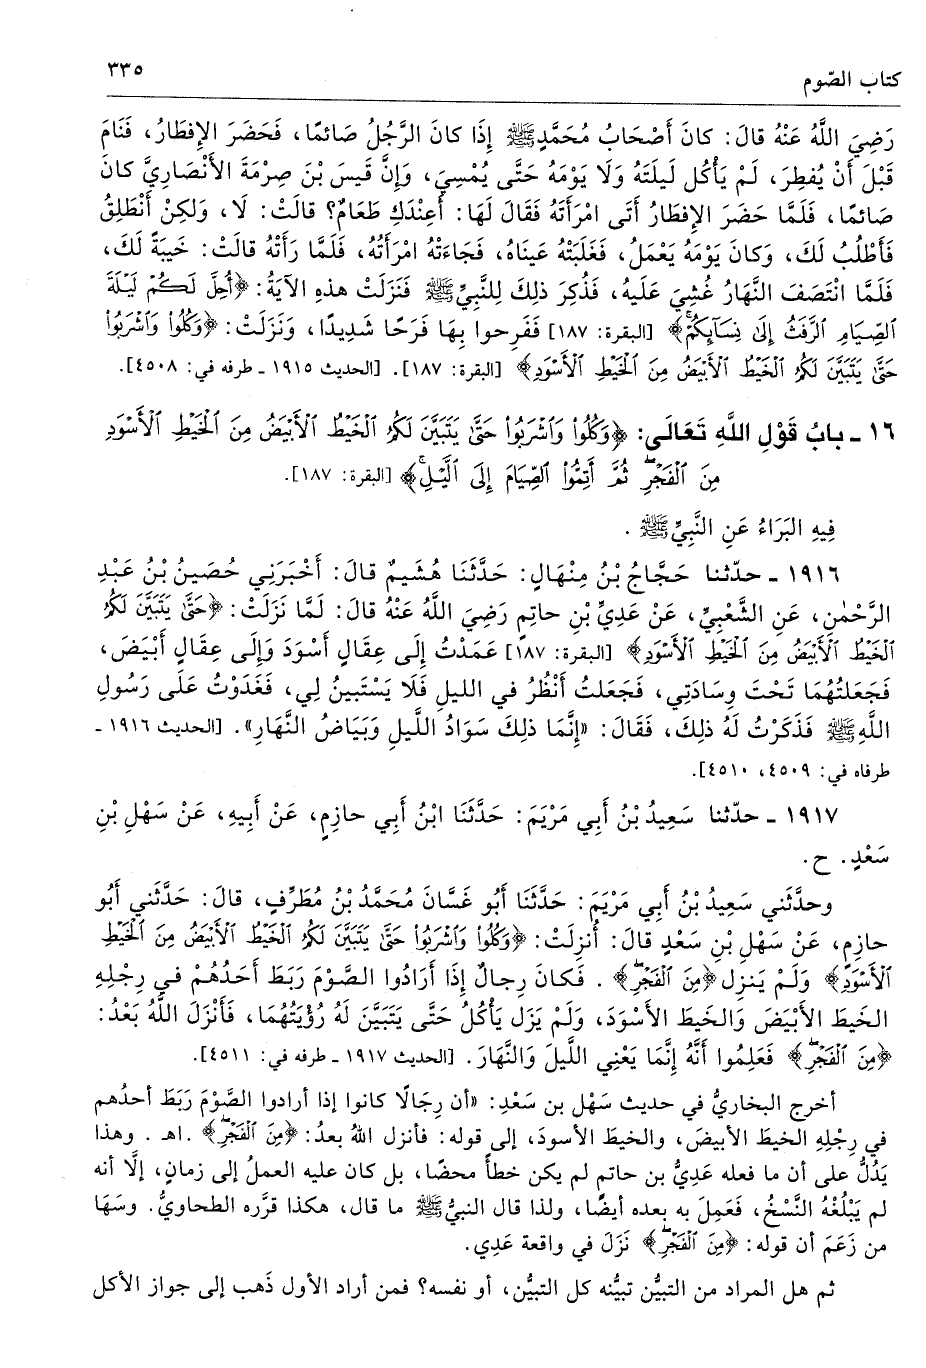 كتاب الصّوم
٣٣٥
رَضِيَ اللَّهُ عَنْهُ قالَ: كانَ أَصْحَابُ مُحَمَّدٍ ﷺ إِذَا كانَ الرَّجُلُ صَائمًا، فَحَضَرَ الإِفطَارُ، فَنَامَ
قَبْلَ أَنْ يُفطِرَ، لَمْ يَأْكُل لَيلَتَهُ وَلَا يَوْمَهُ حَتَّى يُمْسِيَ، وَإِنَّ قَيسَ بْنَ صِرْمَةَ الأَنْصَارِيَّ كانَ
صَائمًا، فَلَمَّا حَضَرَ الإِفطَارُ أَتَى امْرَأَتَهُ فَقَالَ لَهَا: أَعِنْدَكِ طَعَامٌ؟ قالَتْ: لَا، وَلَكِنْ أَنْطَلِقُ
فَأَطْلُبُ لَكَ، وَكانَ يَوْمَهُ يَعْمَلُ، فَغَلَبَتْهُ عَينَاهُ، فَجَاءَتْهُ امْرَأَتُهُ، فَلَمَّا رَأَتْهُ قالَتْ: خَيبَةً لَكَ،
فَلَمَّا انْتَصَفَ النَّهَارُ غُشِيَ عَلَيهِ، فَذُكِرَ ذلِكَ لِلنَّبِيِّ ﷺ فَنَزَلَتْ هذهِ الآيَةُ: ﴿أُحِلَّ لَكُمْ لَيْلَةَ
ٱلصِّيَامِ ٱلرَّفَثُ إِلَىٰ نِسَآئِكُمْ﴾ [البقرة: ١٨٧] فَفَرِحوا بِهَا فَرَحًا شَدِيدًا، وَنَزَلَتْ: ﴿وَكُلُوا۟ وَٱشْرَبُوا۟
حَتَّىٰ يَتَبَيَّنَ لَكُمُ ٱلْخَيْطُ ٱلْأَبْيَضُ مِنَ ٱلْخَيْطِ ٱلْأَسْوَدِ﴾ [البقرة: ١٨٧]. [الحديث ١٩١٥ ـ طرفه في: ٤٥٠٨].
١٦ ـ بابُ قَوْلِ اللَّهِ تَعَالَى: ﴿وَكُلُوا۟ وَٱشْرَبُوا۟ حَتَّىٰ يَتَبَيَّنَ لَكُمُ ٱلْخَيْطُ ٱلْأَبْيَضُ مِنَ ٱلْخَيْطِ ٱلْأَسْوَدِ
مِنَ ٱلْفَجْرِ ثُمَّ أَتِمُّوا۟ ٱلصِّيَامَ إِلَى ٱلَّيْلِ﴾ [البقرة: ١٨٧].
فِيهِ البَرَاءُ عَنِ النَّبِيِّ ﷺ .
١٩١٦ ـ حدّثنا حَجَّاجُ بْنُ مِنْهَالٍ: حَدَّثَنَا هُشَيمٌ قالَ: أَخْبَرَنِي حُصَينُ بْنُ عَبْدِ
الرَّحْمٰنِ، عَنِ الشَّعْبِيِّ، عَنْ عَدِيِّ بْنِ حاتِمٍ رَضِيَ اللَّهُ عَنْهُ قالَ: لَمَّا نَزَلَتْ: ﴿حَتَّىٰ يَتَبَيَّنَ لَكُمُ
ٱلْخَيْطُ ٱلْأَبْيَضُ مِنَ ٱلْخَيْطِ ٱلْأَسْوَدِ﴾ [البقرة: ١٨٧] عَمَدْتُ إِلَى عِقَالٍ أَسْوَدَ وَإِلَى عِقَالٍ أَبْيَضَ،
فَجَعَلتُهُمَا تَحْتَ وِسَادَتِي، فَجَعَلتُ أَنْظُرُ في الليلِ فَلَا يَسْتَبينُ لِي، فَغَدَوْتُ عَلَى رَسُولِ
اللَّهِ ﷺ فَذَكَرْتُ لَهُ ذلِكَ، فَقَالَ: «إِنَّمَا ذلِكَ سَوَادُ اللَّيلِ وَبَيَاضُ النَّهَارِ». [الحديث ١٩١٦ ـ
طرفاه في: ٤٥٠٩، ٤٥١٠].
١٩١٧ ـ حدّثنا سَعِيدُ بْنُ أَبِي مَرْيَمَ: حَدَّثَنَا ابْنُ أَبِي حازِمٍ، عَنْ أَبِيهِ، عَنْ سَهْلِ بْنِ
سَعْدٍ. ح.
وحدَّثَنِي سَعِيدُ بْنُ أَبِي مَرْيَمَ: حَدَّثَنَا أَبُو غَسَّانَ مُحَمَّدُ بْنُ مُطَرِّفٍ، قالَ: حَدَّثَنِي أَبُو
حازِمٍ، عَنْ سَهْلِ بْنِ سَعْدٍ قالَ: أُنزِلَتْ: ﴿وَكُلُوا۟ وَٱشْرَبُوا۟ حَتَّىٰ يَتَبَيَّنَ لَكُمُ ٱلْخَيْطُ ٱلْأَبْيَضُ مِنَ ٱلْخَيْطِ
ٱلْأَسْوَدِ﴾ وَلَمْ يَنزِل ﴿مِنَ ٱلْفَجْرِ﴾ . فَكانَ رِجالٌ إِذَا أَرَادُوا الصَّوْمَ رَبَطَ أَحَدُهُمْ في رِجْلِهِ
الخَيطَ الأَبْيَضَ وَالخَيطَ الأَسْوَدَ، وَلَمْ يَزَل يَأْكُلُ حَتَّى يَتَبَيَّنَ لَهُ رُؤْيَتُهُمَا، فَأَنْزَلَ اللَّهُ بَعْدُ:
﴿مِنَ ٱلْفَجْرِ﴾ فَعَلِمُوا أَنَّهُ إِنَّمَا يَعْنِي اللَّيلَ وَالنَّهَارَ. [الحديث ١٩١٧ ـ طرفه في: ٤٥١١].
أخرج البخاريُّ في حديث سَهْل بن سَعْدٍ: «أن رِجَالًا كانوا إذا أرادوا الصَّوْمَ رَبَطَ أحدُهم
في رِجْلِهِ الخيطَ الأبيضَ، والخيطَ الأسودَ، إلى قوله: فأنزل اللهُ بعدُ: ﴿مِنَ ٱلْفَجْرِ﴾ .اهـ . وهذا
يَدُلُّ على أن ما فعله عَدِيُّ بن حاتمٍ لم يكن خطأً محضًا، بل كان عليه العملُ إلى زمانٍ، إلَّا أنه
لم يَبْلُغْهُ النَّسْخُ، فَعَمِلَ به بعده أيضًا، ولذا قال النبيُّ ﷺ ما قال، هكذا قرَّره الطحاويُّ. وسَهَا
من زَعَمَ أن قوله: ﴿مِنَ ٱلْفَجْرِ﴾ نَزَلَ في واقعة عَدِي.
ثم هل المراد من التبيُّن تبيُّنه كل التبيُّن، أو نفسه؟ فمن أراد الأول ذَهب إلى جواز الأكل